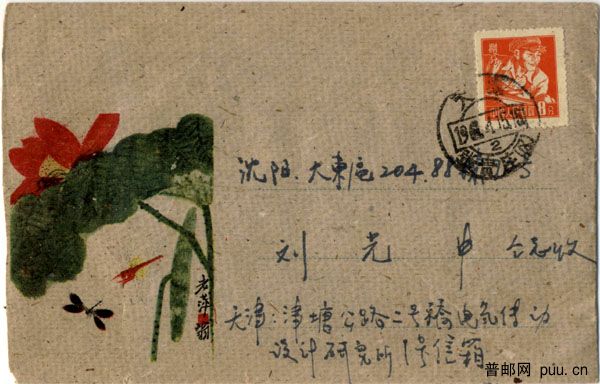 捌
8分
天津
2
沈阳.大东区204.88
刘光中 同志收
老萍
天津:津塘公路二号桥电气传动
设计研究所1号信箱
普邮网 puu.cn